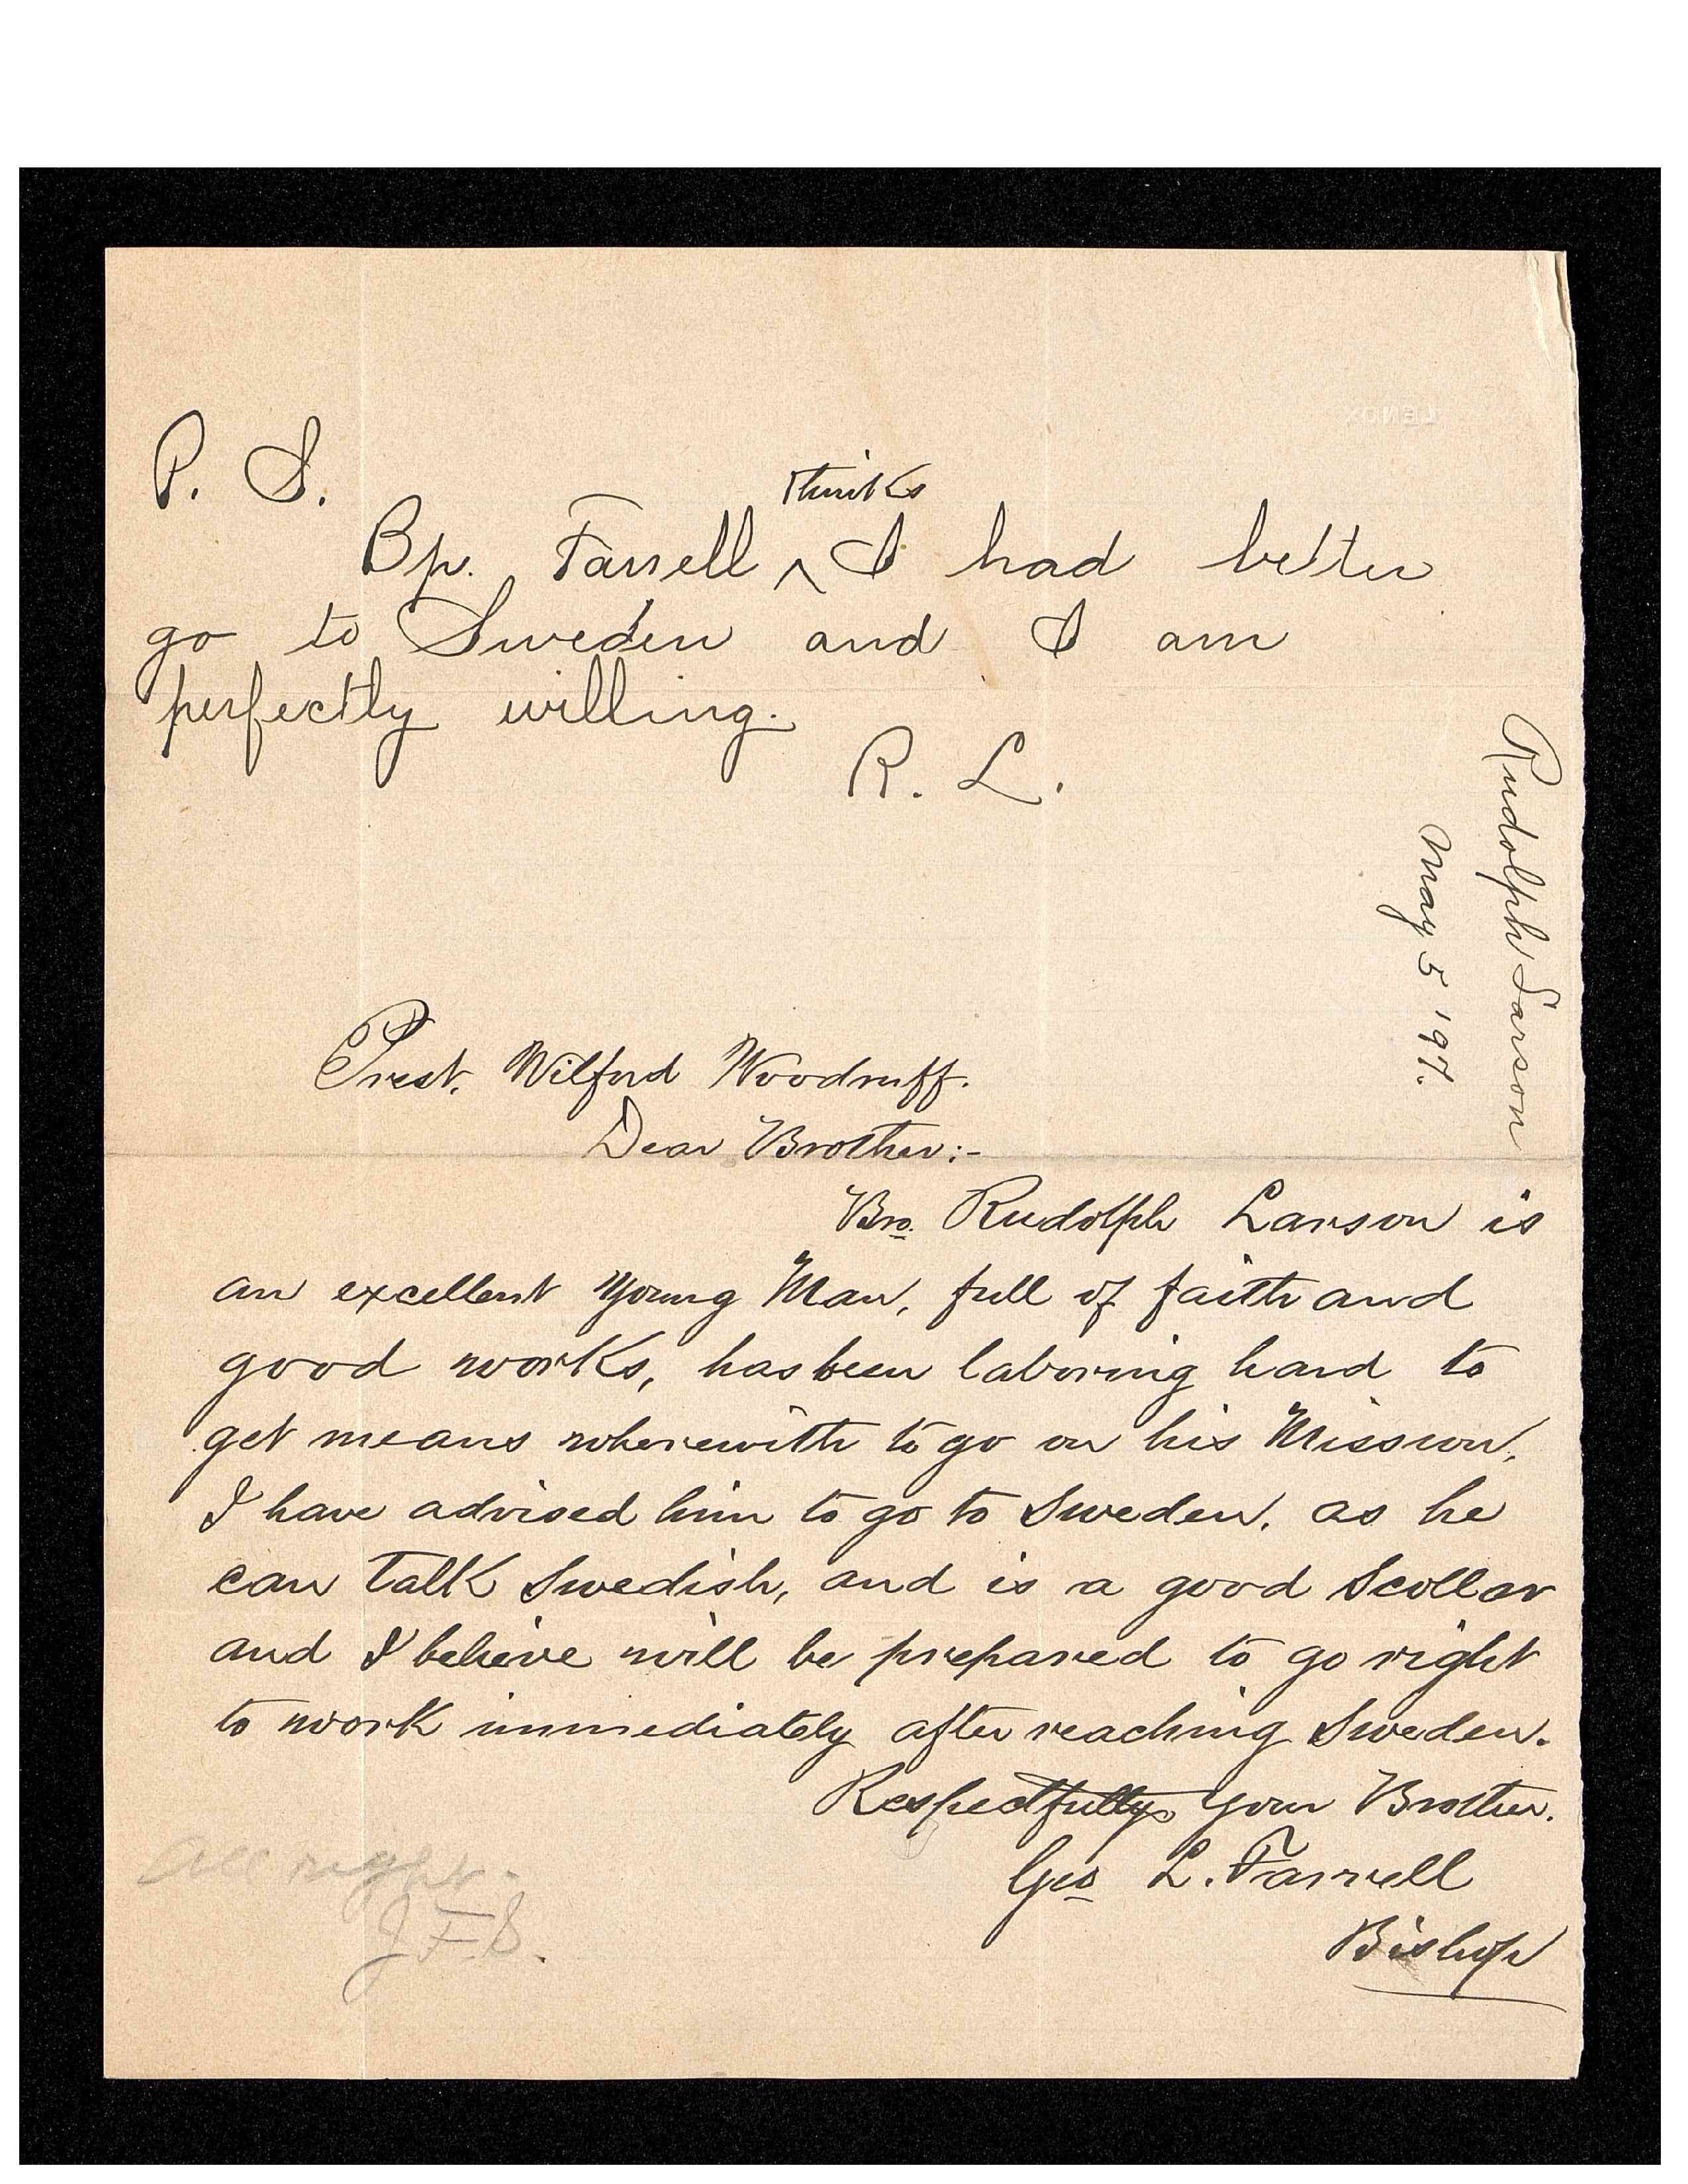 P. S.
thinks
Bp. Farrell ^ I had better
go to Sweden and I am
perfectly willing.
R. L.
Rudolph Larson
May 5 '97.
Prest. Wilford Woodruff.
Dear Brother:-
Bro. Rudolph Larson is
an excellent Young Man, full of faith and
good works, has been laboring hard to
get means wherewith to go on his Mission.
I have advised him to go to Sweden, as he
can talk Swedish, and is a good Scollar
and I believe will be prepared to go right
to work immediately after reaching Sweden.
Respectfully Your Brother.
Geo L. Farrell
Bishop
All right-
J.F.S.
LENOX